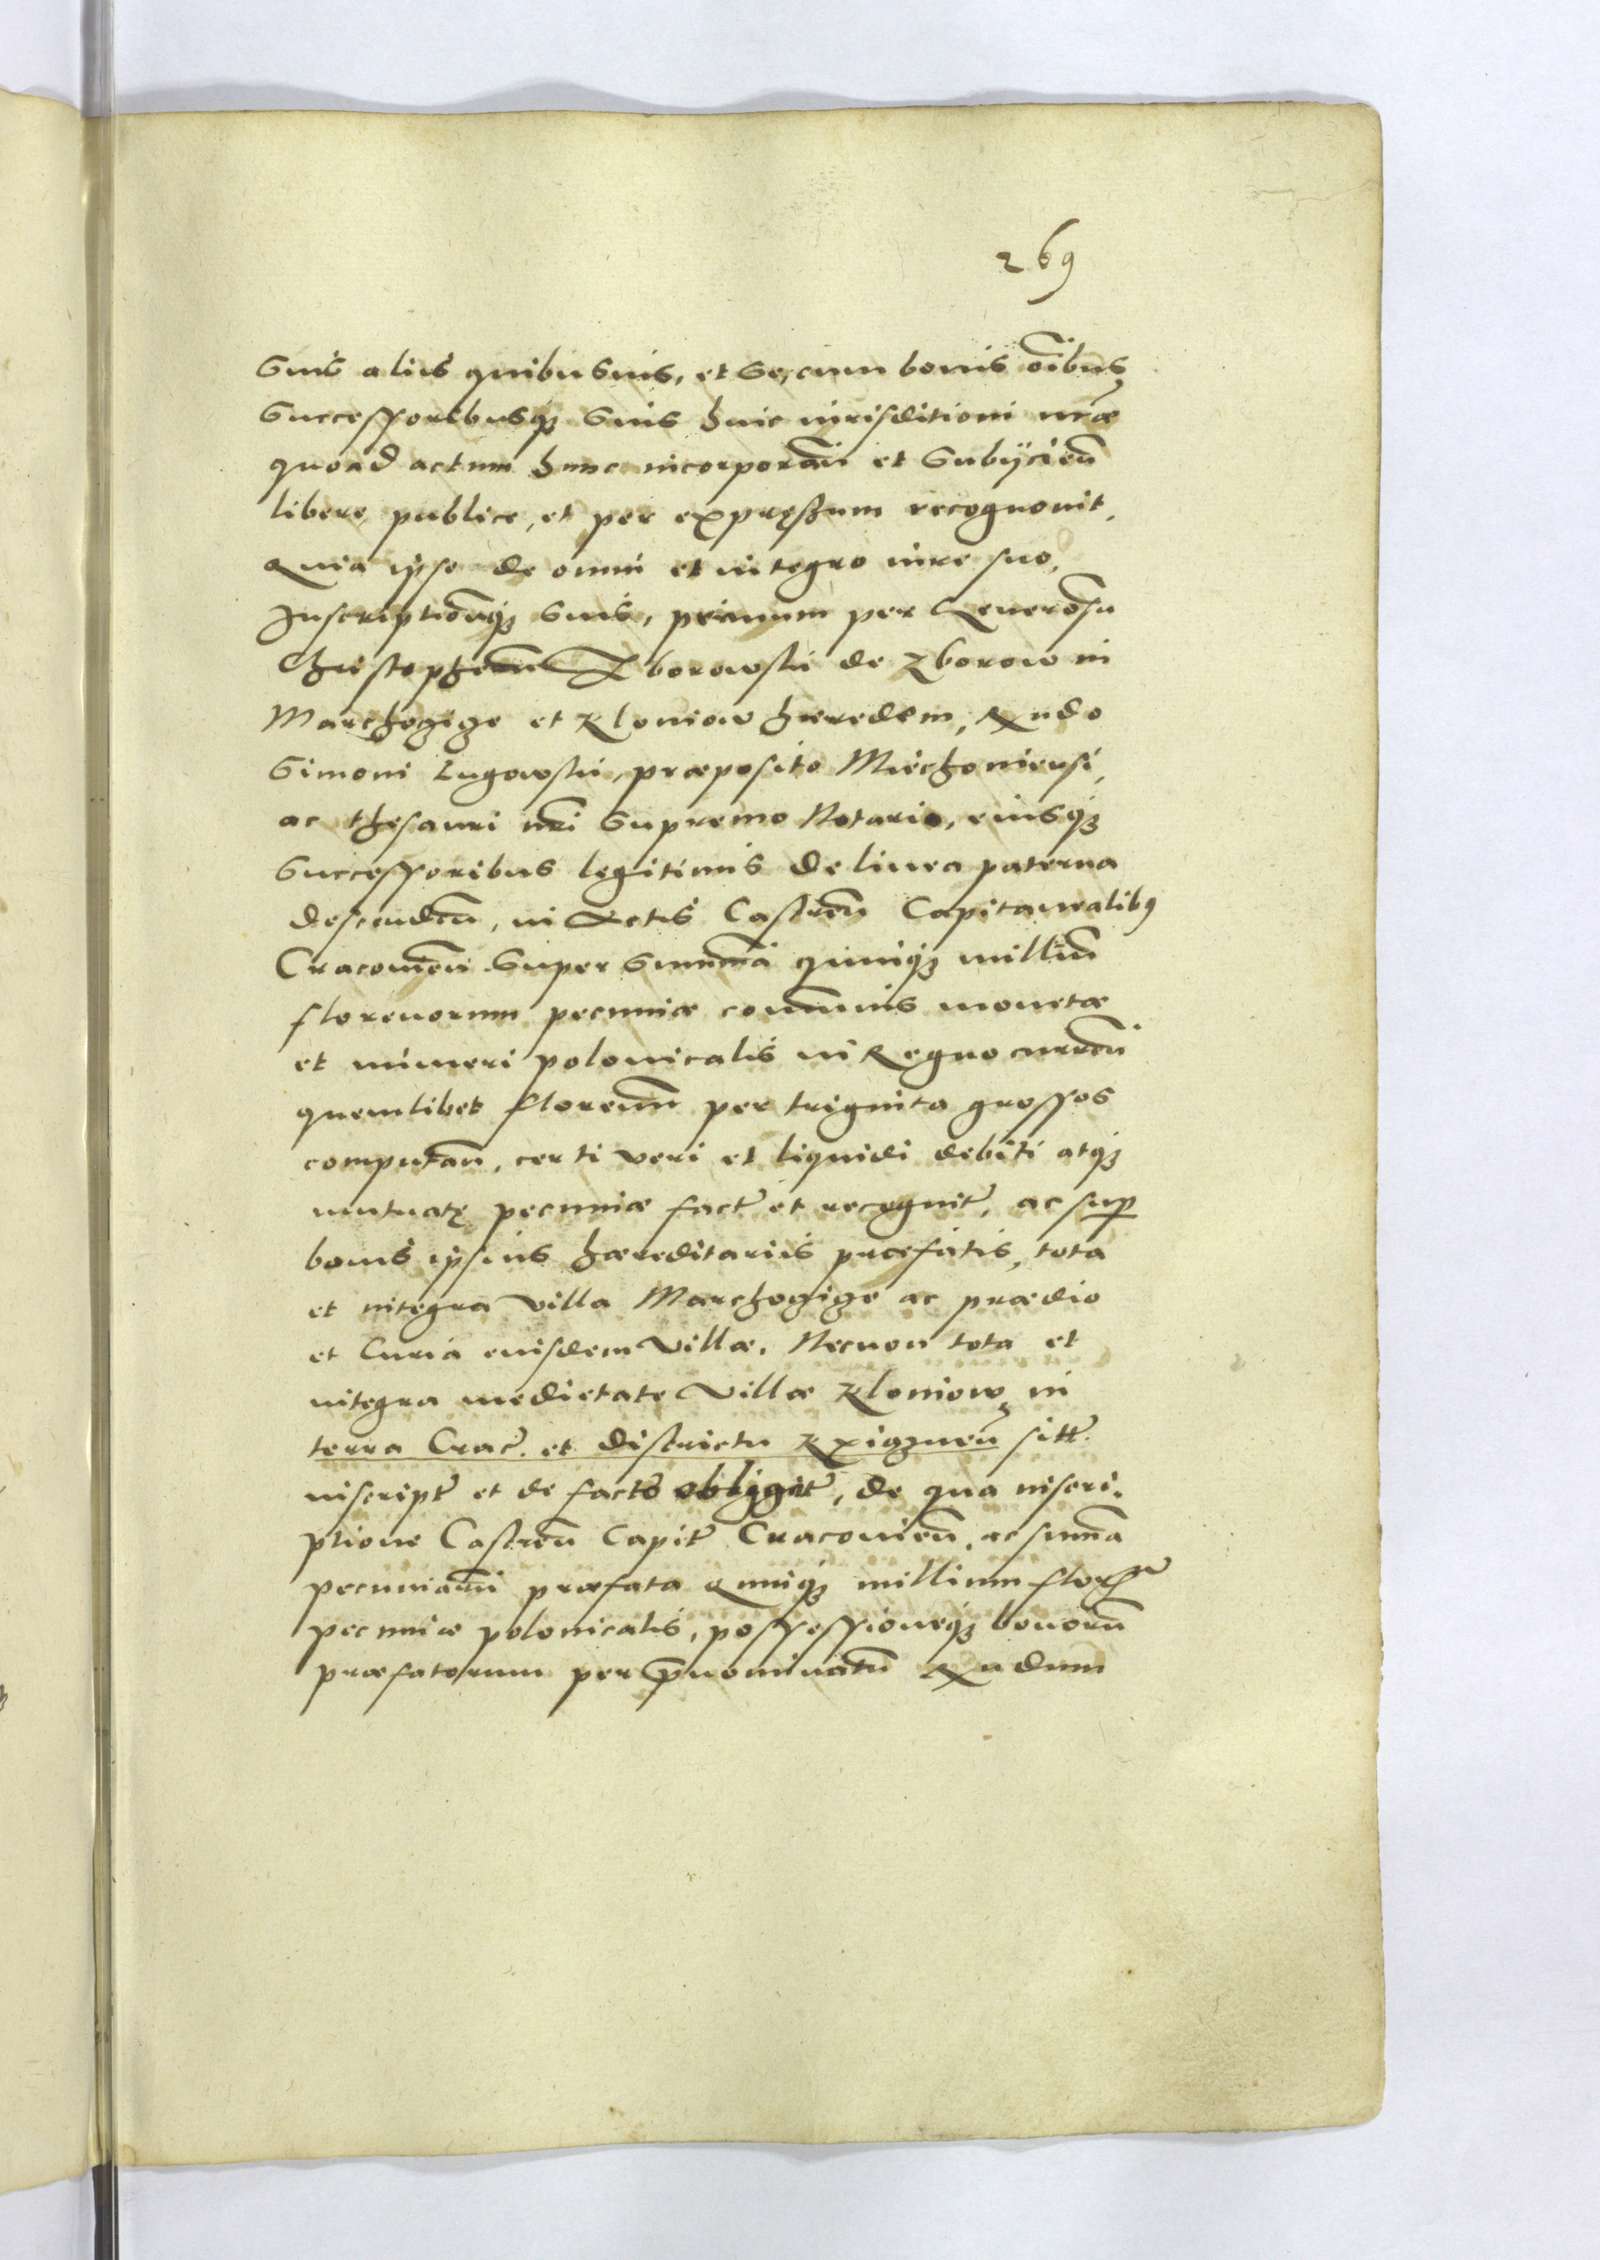 269
suis aliis quibusuis, et se, cum bonis oibus
Successoribusq₃ suis huic iurisditioni nrae
quoad actum hunc incorporañ et Subijcień
libere, publice, et per expręssum recognouit,
Quia ipse de omni et integro iure suo,
Inscriptionq₃ suis, primum per Generosu
Christopherum Zborowski de Zborow in
Marchogige et Kloniow haeredem, Rndo
Simoni Lugowski, praeposito Miechoniensi,
ac thesauri nri Supremo Notario, eiusq₃
Successoribus legitimis de linea paterna
descendeñ, in Actis Castreñ Capitanealibus
Cracouieñ super summã quinq₃ milliũ
florenorum pecuniae cõmunis monetae
et numeri polonicalis in Regno curreñ
quemlibet florenũ per triginta grossos
computañ, certi veri et liquidi debiti atq₃
mutuatę pecuniae fact et recognit, ac sup
bonis ipsius haereditariis praefatis, tota
et integra villa Marchogige ac praedio
et Curia eiusdem Villae. Necnon tota et
integra medietate Villae Kloniow in
terra Crac. et districtu Kxiązneñ sitt.
inscript et de facto obligat, de qua inscri-
ptione Castreñ Capit Cracouień, ac sum̃a
pecuniaria praefata Quinq₃ millium flor
pecuniae polonicalis, possessioneq₃ bonorũ
praefatorum per pnominatũ Rndum